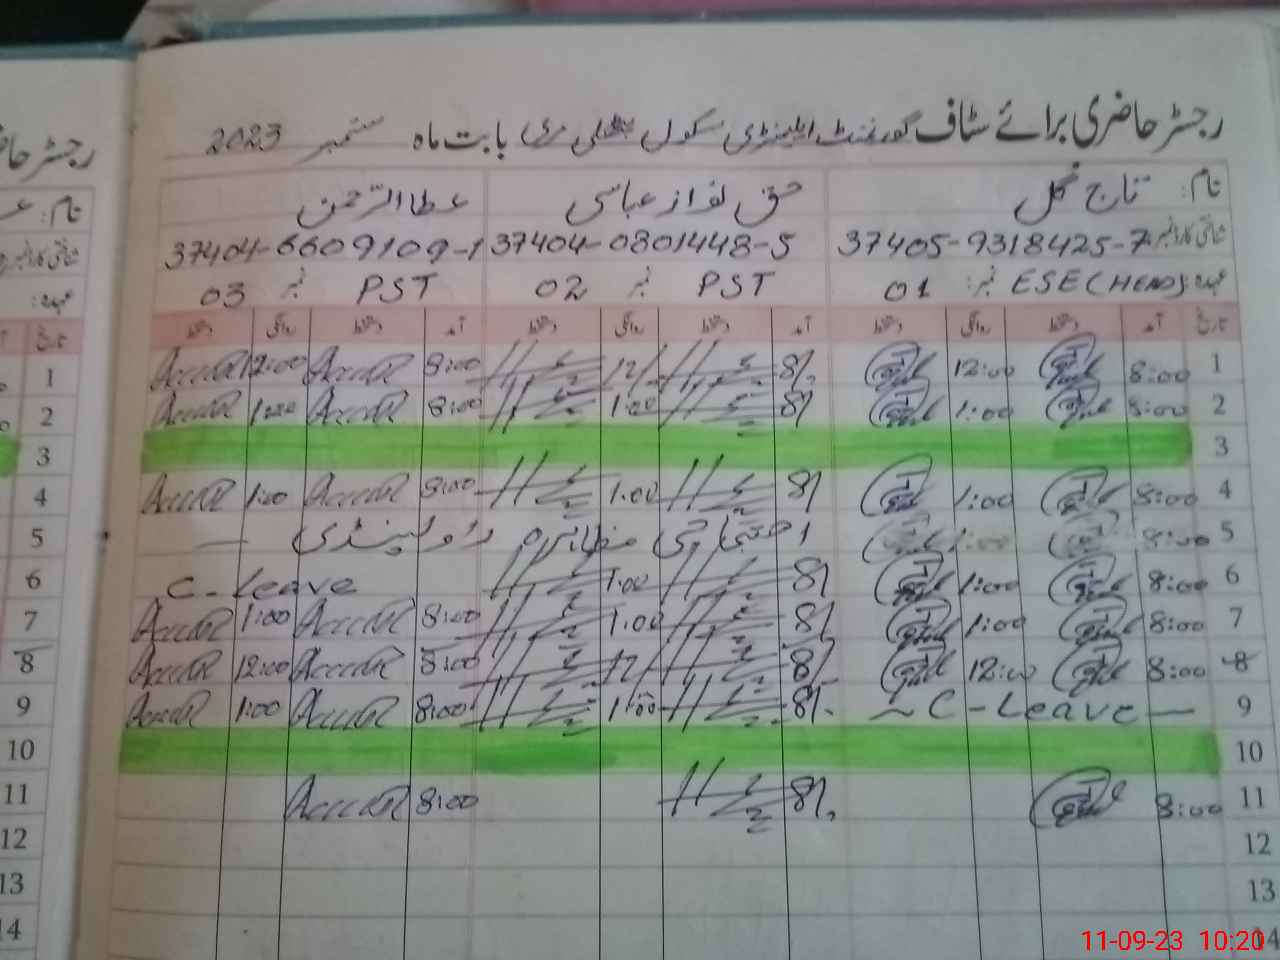 رجسٹر حاضری برائے سٹاف گورنمنٹ ایلیمنٹری سکول بابت ماہ ستمبر 2023
نام: تاج گل حق نواز عباسی عطاالرحمن
شناختی کارڈ نمبر 37405-9318425-7 37404-0801448-5 37404-6609109-1
عہدہ: ESE (HEAD) نمبر 01 PST نمبر 02 PST نمبر 03
تاریخ آمد دستخط روانگی دستخط آمد دستخط روانگی دستخط آمد دستخط روانگی دستخط
1 8:00 12:00 8/. 12/ 8:00 12:00
2 8:00 1:00 8/ 1:00 8:00 1:00
3
4 8:00 1:00 8/ 1:00 8:00 1:00
5 8:00 1:00 احتجاجی مظاہرہ راولپنڈی —
6 8:00 1:00 8/ 1:00 C-Leave
7 8:00 1:00 8/ 1:00 8:00 1:00
8 8:00 12:00 8/ 12/ 8:00 12:00
9 ~ C-Leave — 8/. 1:00 8:00 1:00
10
11 8:00 8/. 8:00
12
13
14
رجسٹر حا
نام:
عہدہ:
تاریخ
1
2
3
4
5
6
7
8
9
10
11
12
13
14
11-09-23 10:20